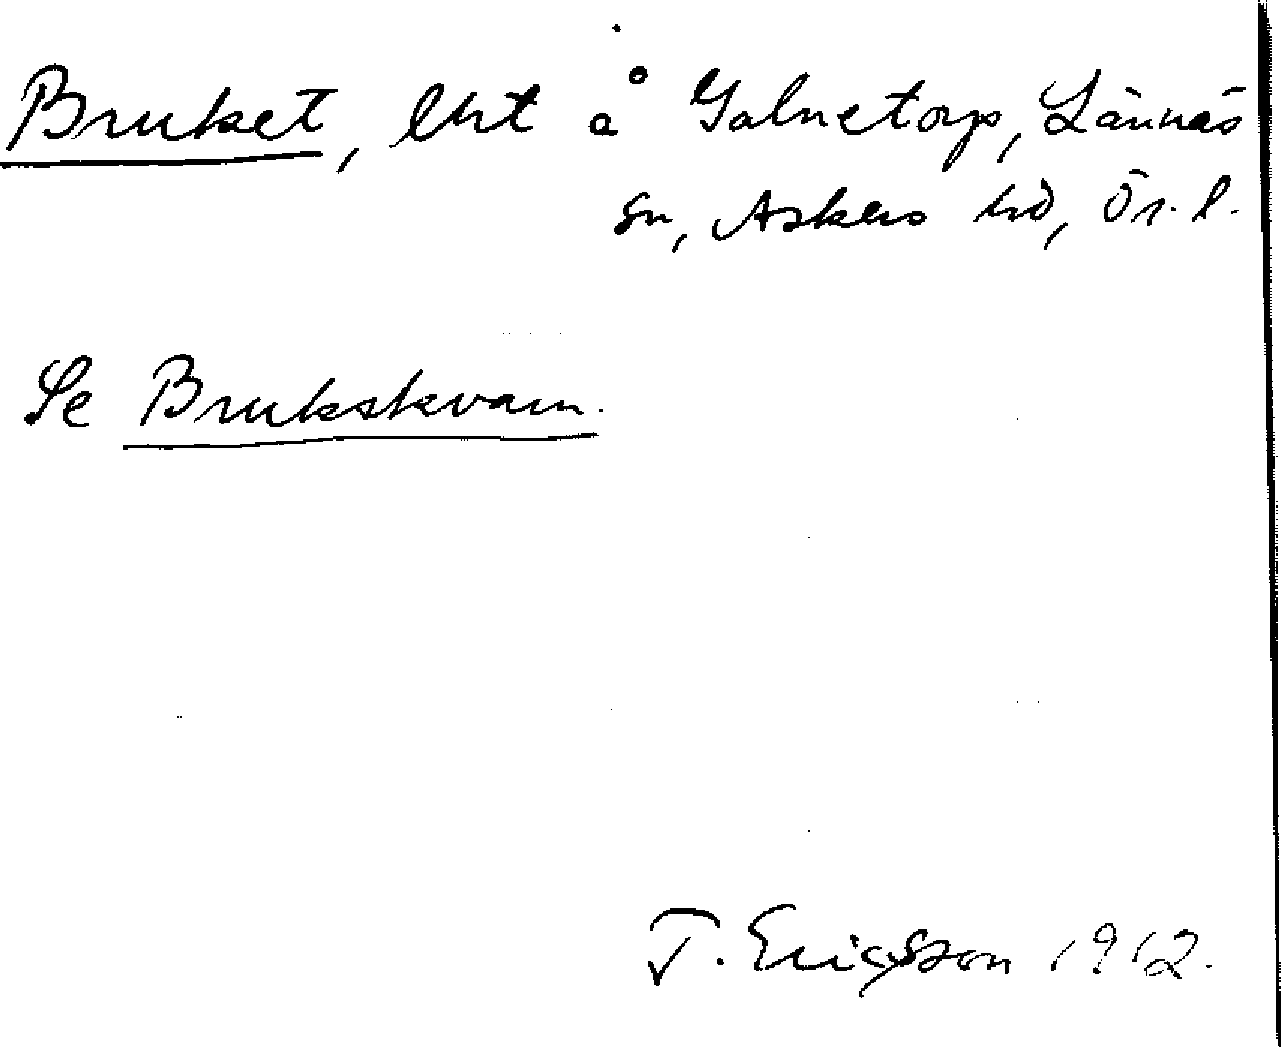 Bruket, lht å Galnetorp, Lännäs
sn, Askers hd, Ör. l.
Se Brukskvarn.
T. Ericsson 1912.